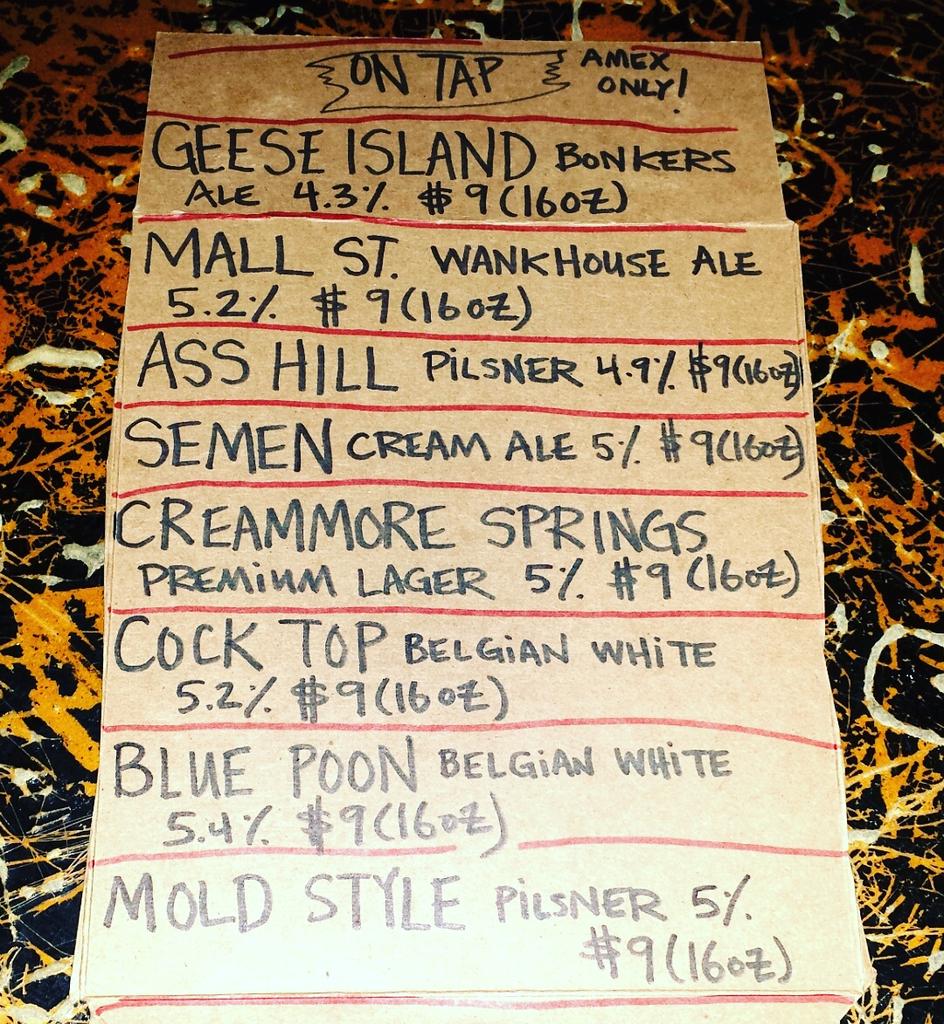 ON TAP AMEX ONLY!
GEESE ISLAND BONKERS
ALE 4.3% $9(16oz)
MALL ST. WANKHOUSE ALE
5.2% $9(16oz)
ASS HILL PILSNER 4.9% $9(16oz)
SEMEN CREAM ALE 5% $9(16oz)
CREAMMORE SPRINGS
PREMIUM LAGER 5% $9(16oz)
COCK TOP BELGIAN WHITE
5.2% $9(16oz)
BLUE POON BELGIAN WHITE
5.4% $9(16oz)
MOLD STYLE PILSNER 5%
$9(16oz)